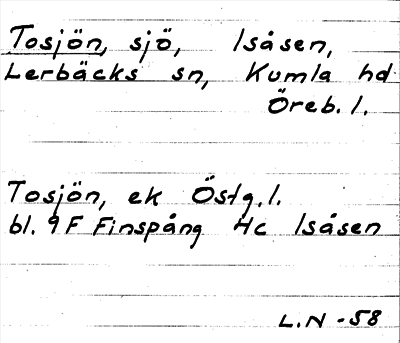 Tosjön, sjö, Isåsen,
Lerbäcks sn, Kumla hd
Öreb. l.
Tosjön, ek Östg. l.
bl. 9F Finspång 4c Isåsen
L.N -58